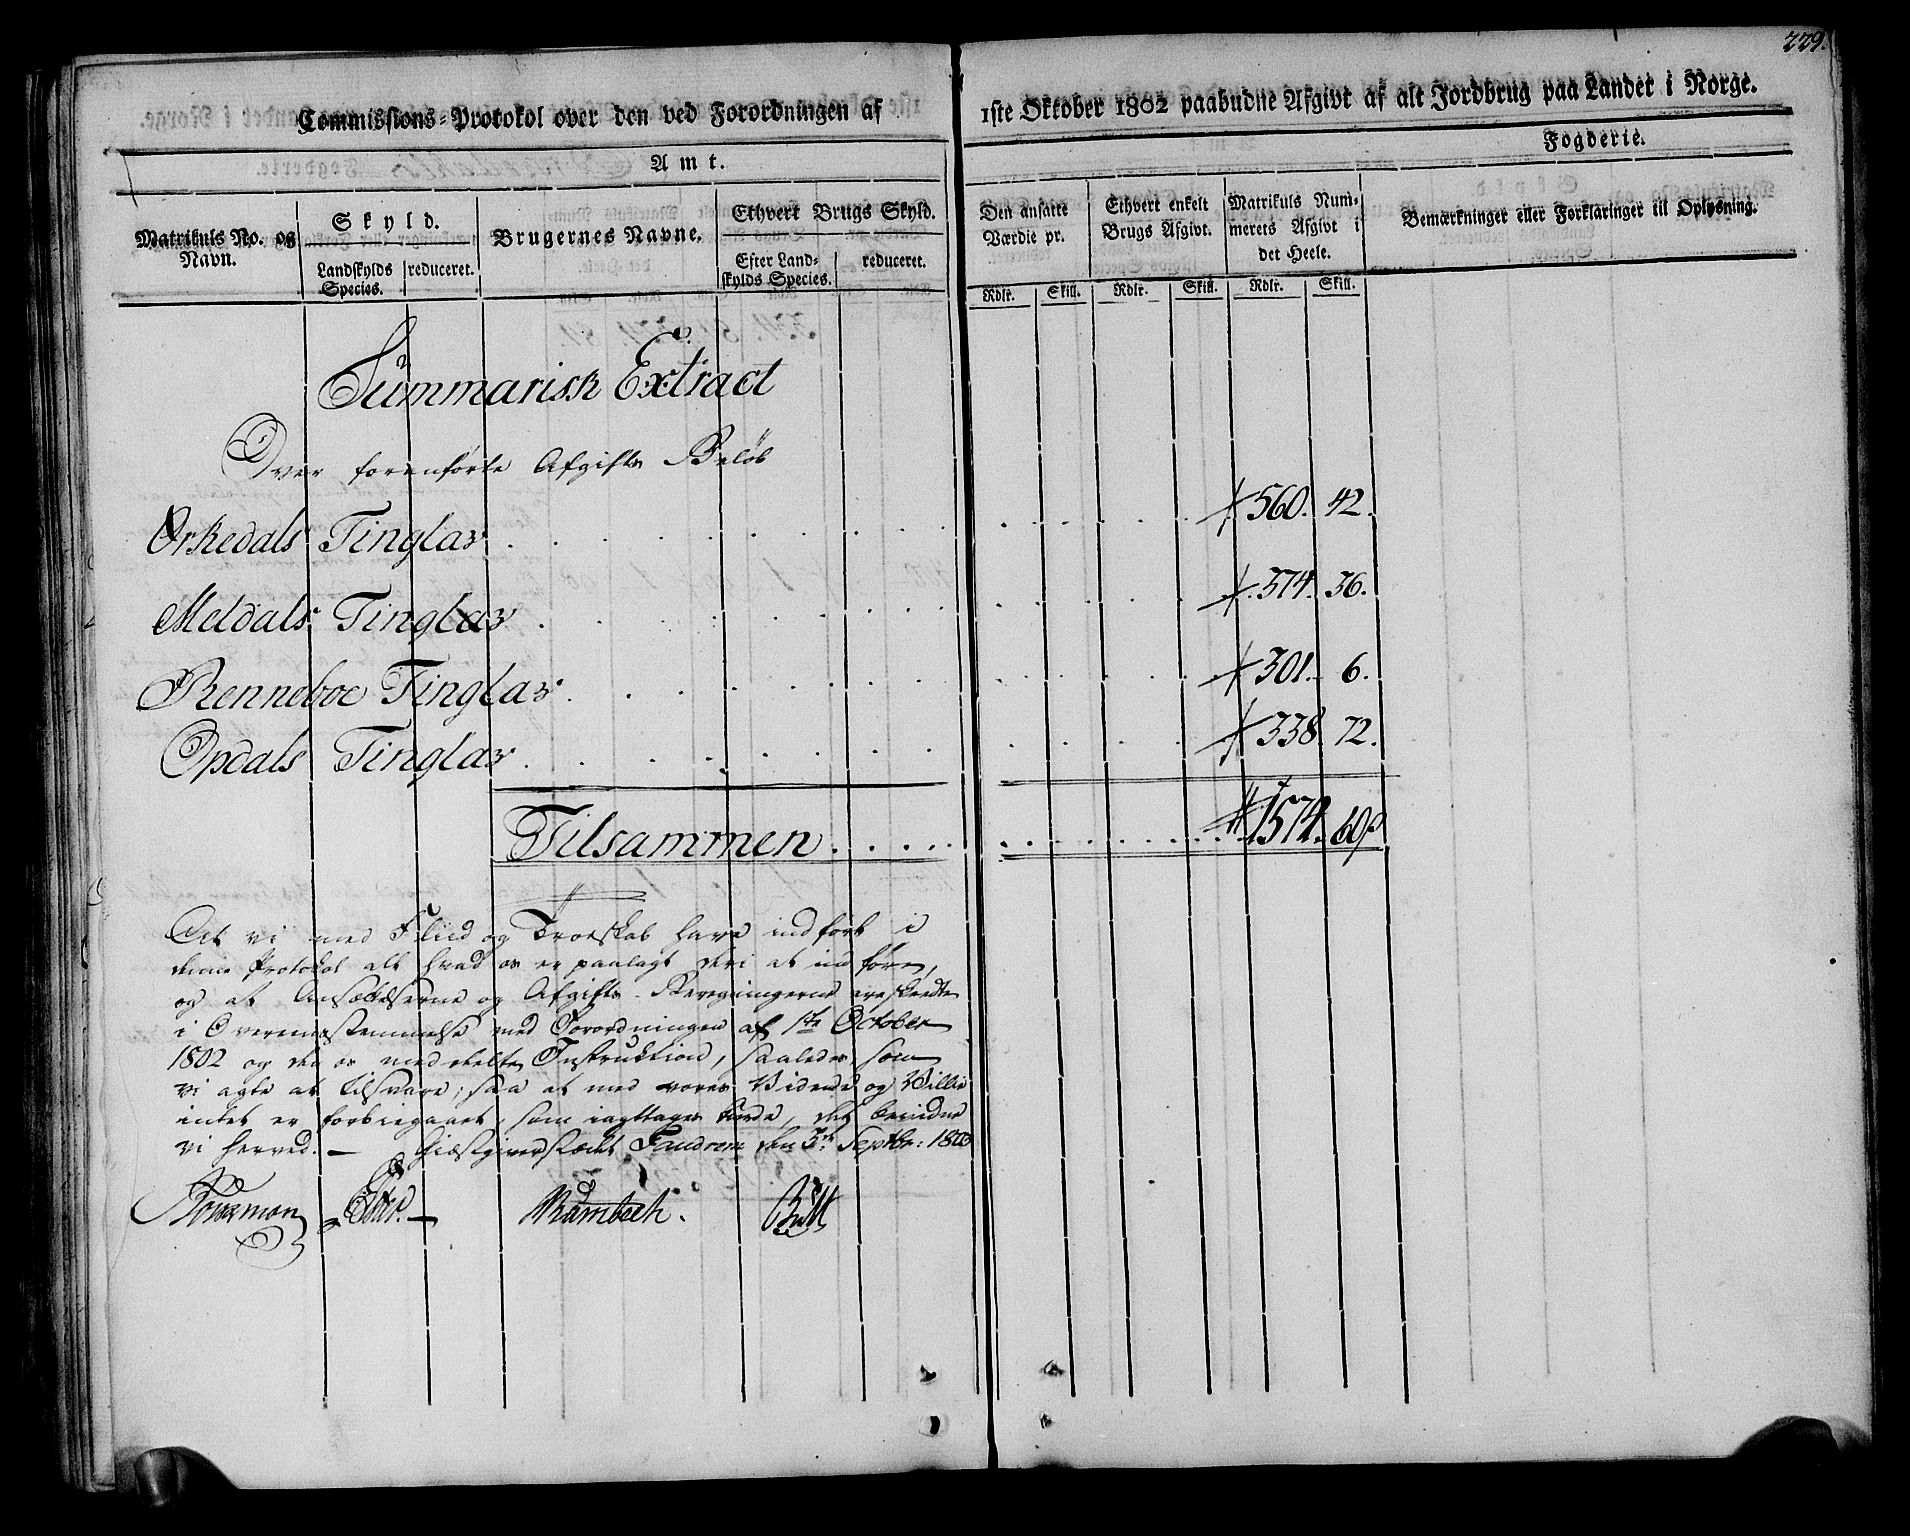 229.
Commissions-Protokol over den ved Forordningen af 1ste Oktober 1802 paabudne Afgivt af alt Jordbrug paa Landet i Norge.
Amt. Fogderie.
Matrikuls No. og Navn.
Skyld.
Landskylds Species. reduceret.
Brugernes Navne.
Ethvert Brugs Skyld.
Efter Landskylds Species. reduceret.
Den ansatte Værdie pr.
Ethvert enkelt Brugs Afgivt.
Matrikuls Nummerets Afgivt i det Heele.
Bemærkninger eller Forklaringer til Oplysning.
Rdlr. Skill. Rdlr. Skill. Rdlr. Skill.
Summarisk Extract
Over foranførte Afgifts Beløb
Orkedals Tinglav . . . 560. 42.
Meldals Tinglav . . . 374. 36.
Renneboe Tinglav . . . 301. 6.
Opdals Tinglav . . . 338. 72.
Tilsammen . . . 1574. 60
At vi med Fliid og Troeskab have indført i
denne Protokol alt hvad os er paalagt deri at indføre,
og at Ansættelserne og Afgifts-Beregningerne ere skeedte
i Overeensstemmelse med Forordningen af 1ste October
1802 og den os meddeelte Instruktion, saaledes som
vi agte at tilsvare; saa at med vores Vidende og Villie
intet er forbiegaaet, som iagttages burde, det bevidne
vi herved. — Giæstgiverstædet den 5te Septbr: 1803
Rambech. Butt